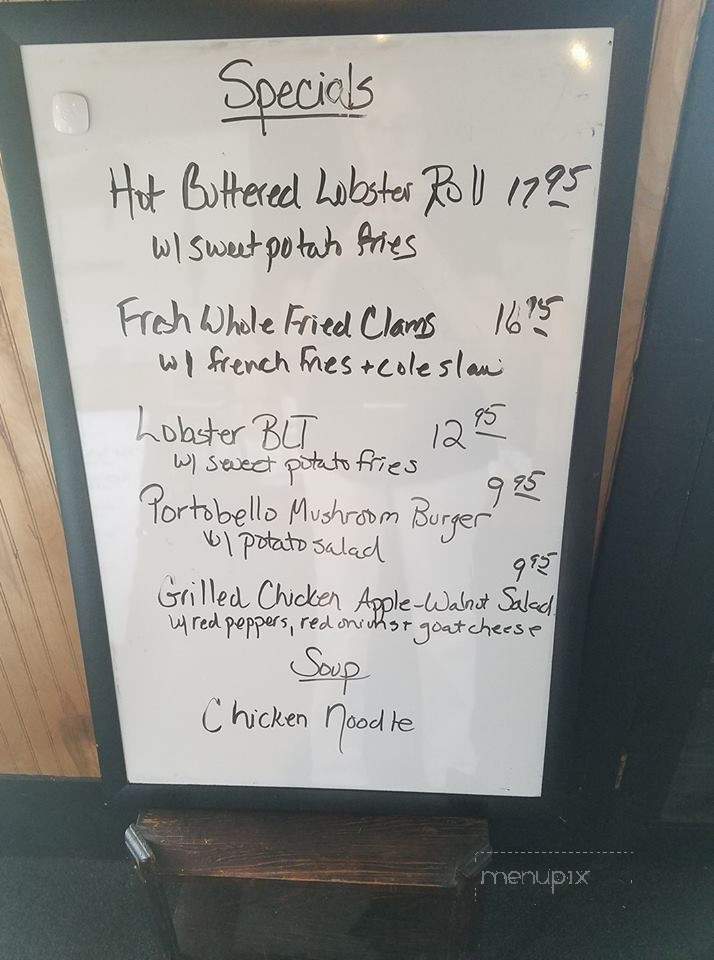 Specials
Hot Buttered Lobster Roll 17.95
w/ sweet potato fries
Fresh Whole Fried Clams 16.95
w/ french fries + coleslaw
Lobster BLT 12.95
w/ sweet potato fries
9.95
Portobello Mushroom Burger
w/ potato salad
9.95
Grilled Chicken Apple-Walnut Salad
w/ red peppers, red onions + goat cheese
Soup
Chicken Noodle
menupix